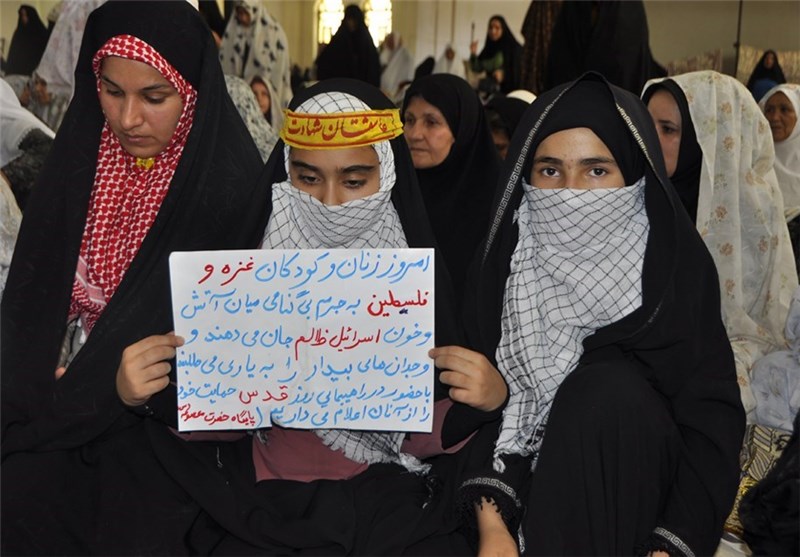 عاشقان شهادت
امروز زنان و کودکان غزه و
فلسطین به جرم بی گناهی میان آتش
و خون اسرائیل ظالم جان می دهند و
وجدان های بیدار را به یاری می طلبند
با حضور در راهپیمایی روز قدس حمایت خود
را از آنان اعلام می داریم (پایگاه حضرت معصومه